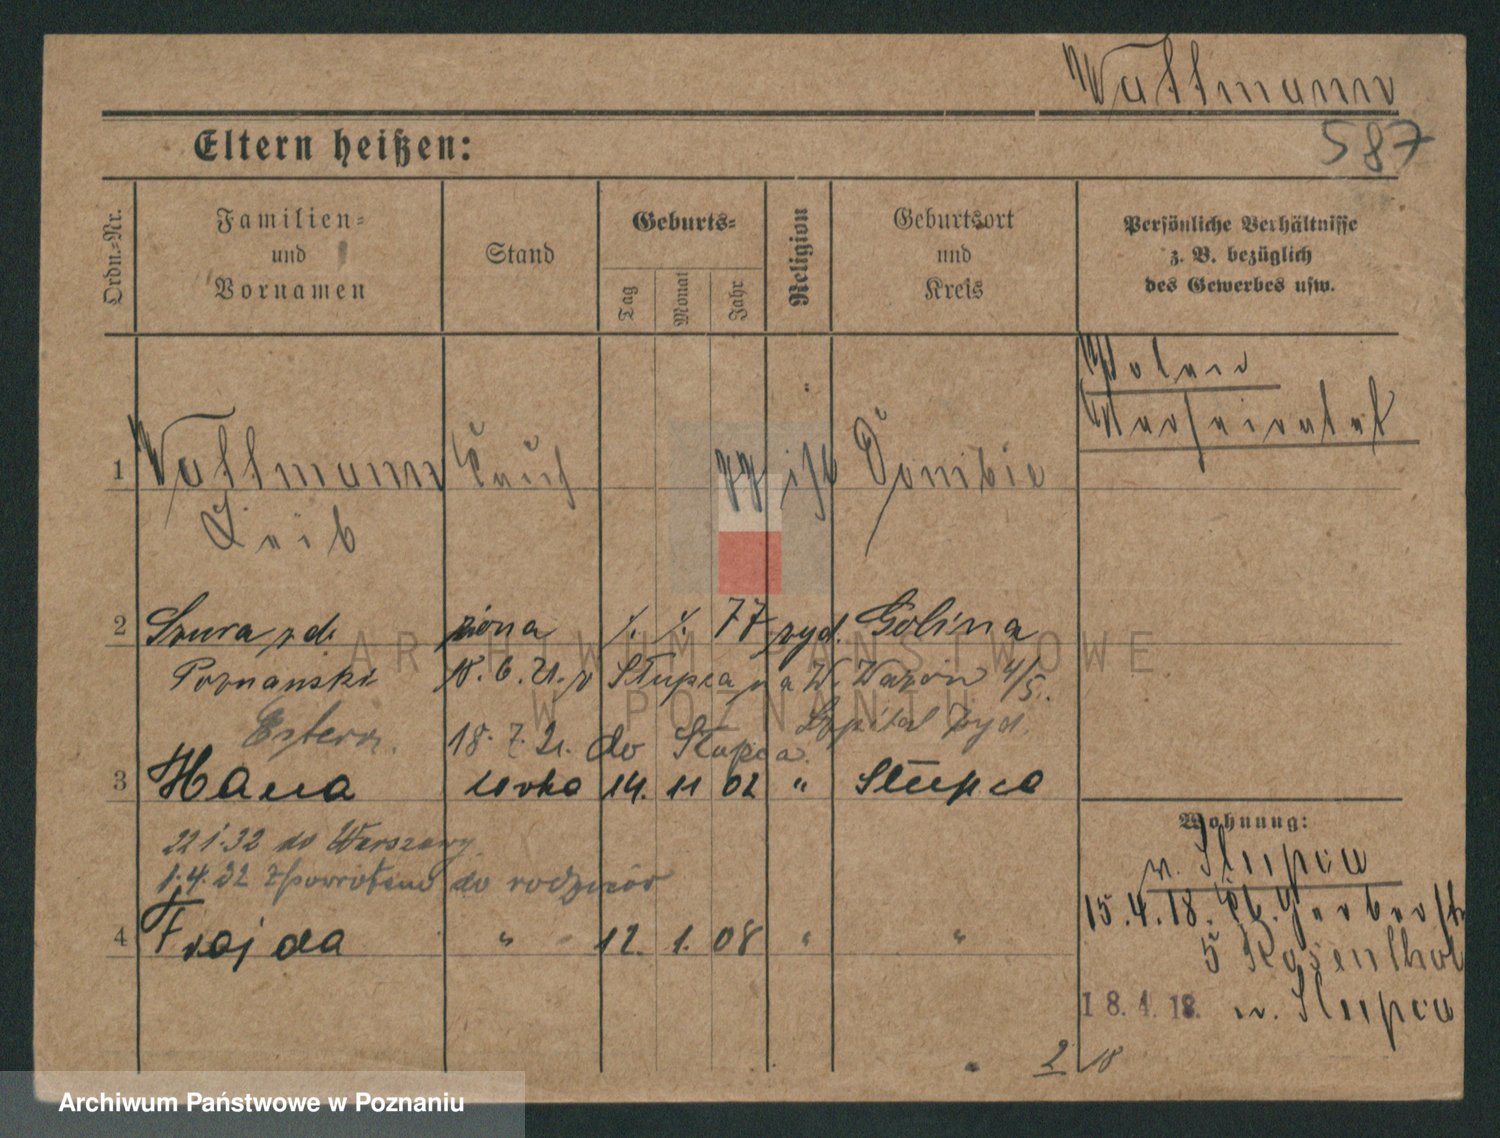 Wattmann
587
Eltern heißen:
Ordn.-Nr.
Familien-
und
Vornamen
Stand
Geburts-
Tag
Monat
Jahr
Religion
Geburtsort
und
Kreis
Persönliche Verhältnisse
z. B. bezüglich
des Gewerbes usw.
Polen
Verheiratet
1 Wattmann 77 Dombie
Leib
2 Szura z d. żona 77 żyd. Golina
Poznanski 18.6.21. Słupca na W. 4/5.
Estera. 18.7.21. do Słupca. Szpital żyd.
3 Hana córka 14. 11 02 " Słupca
22 1.32 do Warszawy
1.4.32 do rodziców
4 Frajda " 12. 1. 08 " "
Wohnung:
n. Slupca
15.4.18. b. Gerberstr
5 Rosenthal
18.4.18. n. Slupca
2 18
ARCHIWUM PAŃSTWOWE
W POZNANIU
Archiwum Państwowe w Poznaniu